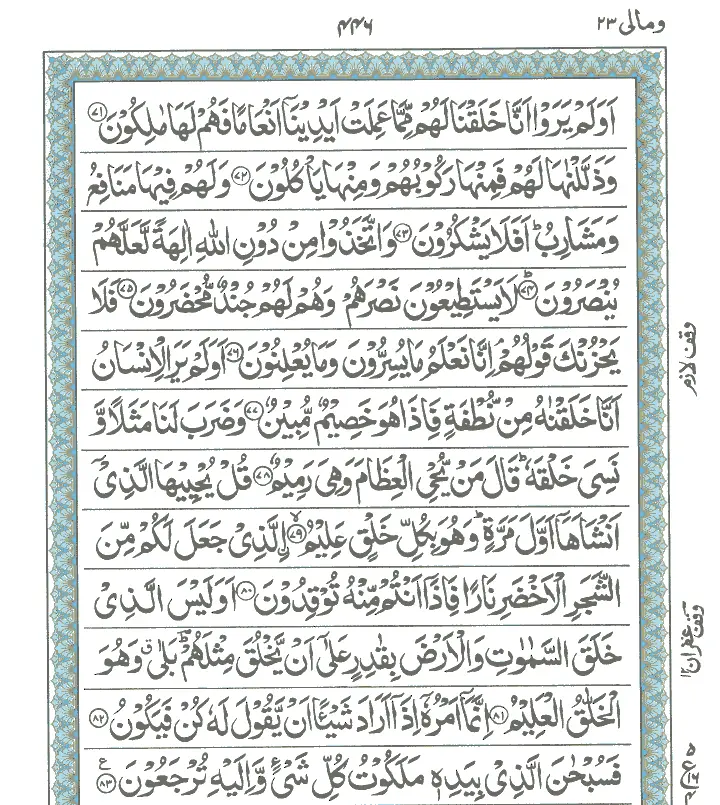 ومالی ۲۳
۴۴۶
اَوَلَمۡ يَرَوۡا اَنَّا خَلَقۡنَا لَهُمۡ مِّمَّا عَمِلَتۡ اَيۡدِيۡنَاۤ اَنۡعَامًا فَهُمۡ لَهَا مٰلِكُوۡنَ ﴿۷۱﴾
وَذَلَّلۡنٰهَا لَهُمۡ فَمِنۡهَا رَكُوۡبُهُمۡ وَمِنۡهَا يَاۡكُلُوۡنَ ﴿۷۲﴾ وَلَهُمۡ فِيۡهَا مَنَافِعُ
وَمَشَارِبُ‌ؕ اَفَلَا يَشۡكُرُوۡنَ ﴿۷۳﴾ وَاتَّخَذُوۡا مِنۡ دُوۡنِ اللّٰهِ اٰلِهَةً لَّعَلَّهُمۡ
يُنۡصَرُوۡنَؕ ﴿۷۴﴾ لَا يَسۡتَطِيۡعُوۡنَ نَصۡرَهُمۡۙ وَهُمۡ لَهُمۡ جُنۡدٌ مُّحۡضَرُوۡنَ ﴿۷۵﴾ فَلَا
يَحۡزُنۡكَ قَوۡلُهُمۡ‌ۘ اِنَّا نَعۡلَمُ مَا يُسِرُّوۡنَ وَمَا يُعۡلِنُوۡنَ ﴿۷۶﴾ اَوَلَمۡ يَرَ الۡاِنۡسَانُ
اَنَّا خَلَقۡنٰهُ مِنۡ نُّطۡفَةٍ فَاِذَا هُوَ خَصِيۡمٌ مُّبِيۡنٌ ﴿۷۷﴾ وَضَرَبَ لَنَا مَثَلًا وَّ
نَسِىَ خَلۡقَهٗ‌ؕ قَالَ مَنۡ يُّحۡىِ الۡعِظَامَ وَهِىَ رَمِيۡمٌ ﴿۷۸﴾ قُلۡ يُحۡيِيۡهَا الَّذِىۡۤ
اَنۡشَاَهَاۤ اَوَّلَ مَرَّةٍ‌ؕ وَهُوَ بِكُلِّ خَلۡقٍ عَلِيۡمُۙ ﴿۷۹﴾ اۨلَّذِىۡ جَعَلَ لَكُمۡ مِّنَ
الشَّجَرِ الۡاَخۡضَرِ نَارًا فَاِذَاۤ اَنۡتُمۡ مِّنۡهُ تُوۡقِدُوۡنَ ﴿۸۰﴾ اَوَلَيۡسَ الَّذِىۡ
خَلَقَ السَّمٰوٰتِ وَالۡاَرۡضَ بِقٰدِرٍ عَلٰٓى اَنۡ يَّخۡلُقَ مِثۡلَهُمۡؕ‌ بَلٰى وَهُوَ
الۡخَلّٰقُ الۡعَلِيۡمُ ﴿۸۱﴾ اِنَّمَاۤ اَمۡرُهٗۤ اِذَاۤ اَرَادَ شَيۡــًٔا اَنۡ يَّقُوۡلَ لَهٗ كُنۡ فَيَكُوۡنُ ﴿۸۲﴾
فَسُبۡحٰنَ الَّذِىۡ بِيَدِهٖ مَلَكُوۡتُ كُلِّ شَىۡءٍ وَّاِلَيۡهِ تُرۡجَعُوۡنَ ﴿۸۳﴾
وقف لازم
وقف غفران